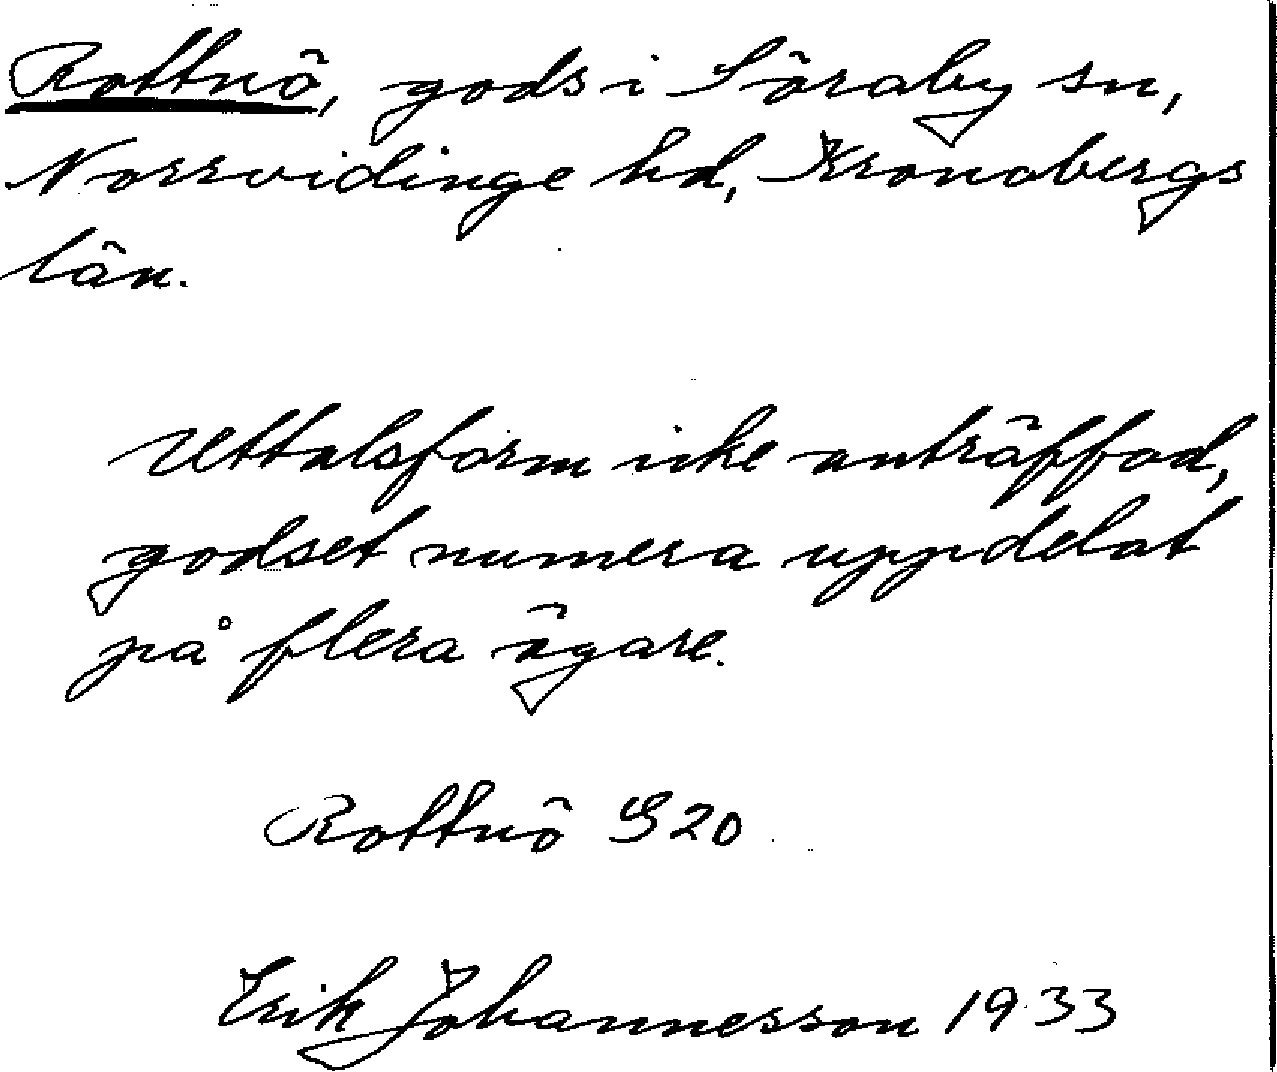 Rottnö, gods i Söraby sn,
Norrvidinge hd, Kronobergs
län.
Uttalsform icke anträffad,
godset numera uppdelat
på flera ägare.
Rottnö S 20
Erik Johannesson 1933